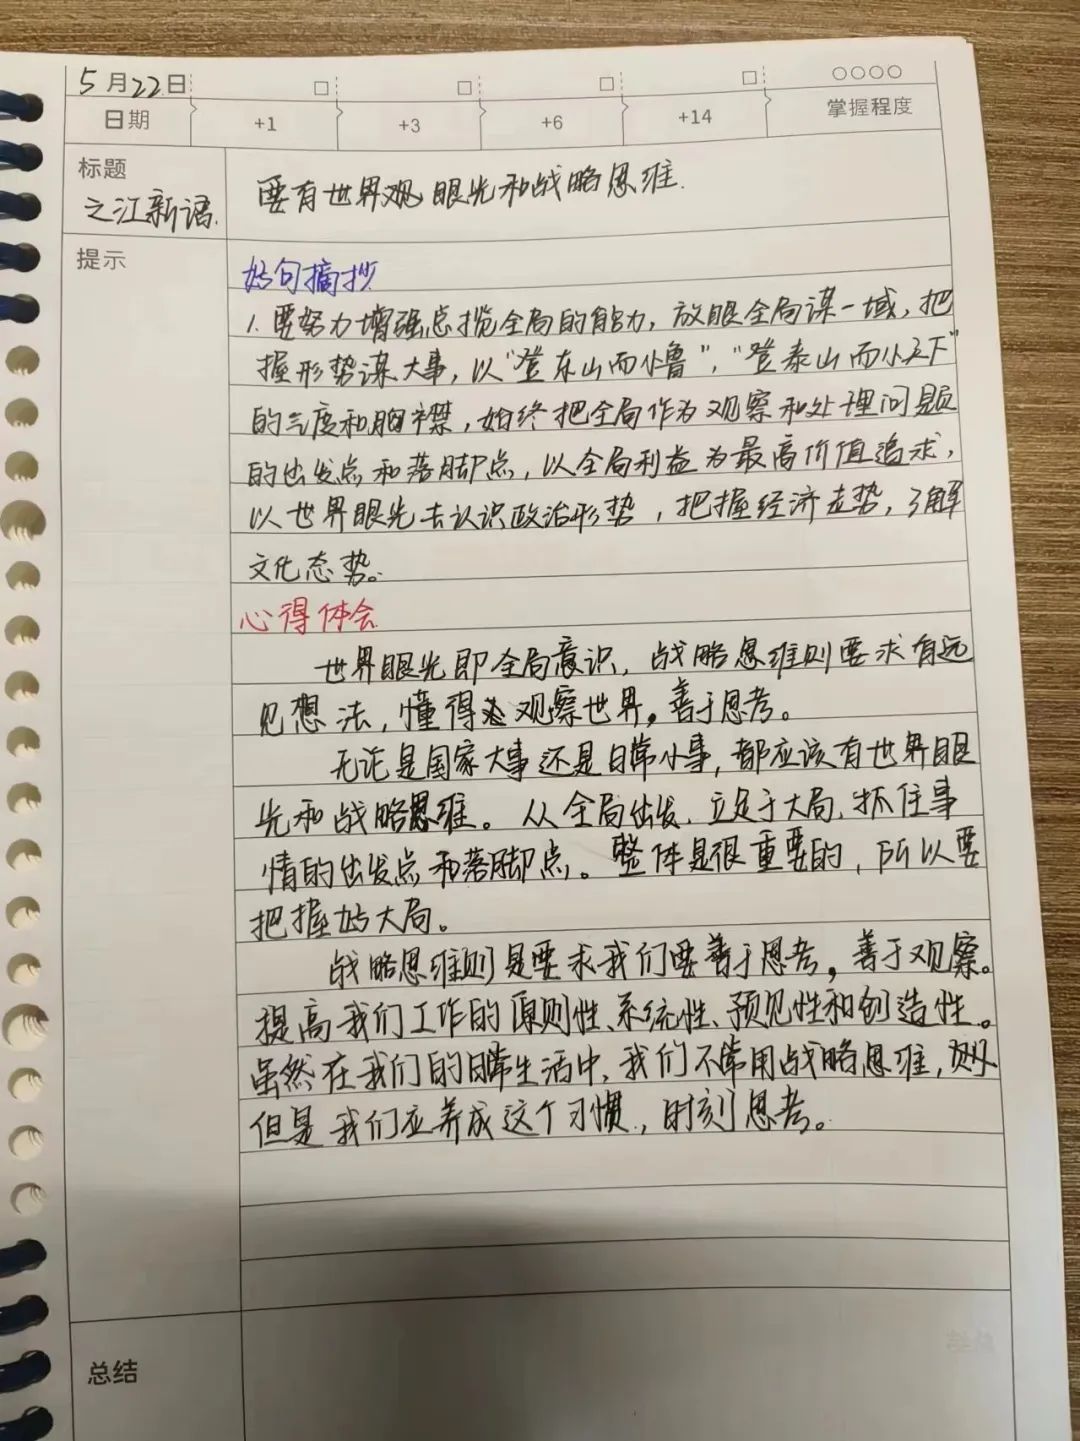 5月22日 □ □ □ □ ○○○○
日期 +1 +3 +6 +14 掌握程度
标题
之江新语. 要有世界观眼光和战略思维.
提示
好句摘抄
1.要努力增强总揽全局的能力，放眼全局谋一域，把
握形势谋大事，以“登东山而小鲁”，“登泰山而小天下”
的气度和胸襟，始终把全局作为观察和处理问题
的出发点和落脚点，以全局利益为最高价值追求，
以世界眼光去认识政治形势，把握经济走势，了解
文化态势。
心得体会
世界眼光即全局意识，战略思维则要求有远
见想法，懂得观察世界。善于思考。
无论是国家大事还是日常小事，都应该有世界眼
光和战略思维。从全局出发，立足于大局，抓住事
情的出发点和落脚点。整体是很重要的，所以要
把握好大局。
战略思维则是要求我们要善于思考，善于观察。
提高我们工作的原则性、系统性、预见性和创造性。
虽然在我们的日常生活中，我们不常用战略思维，
但是我们应养成这个习惯，时刻思考。
总结